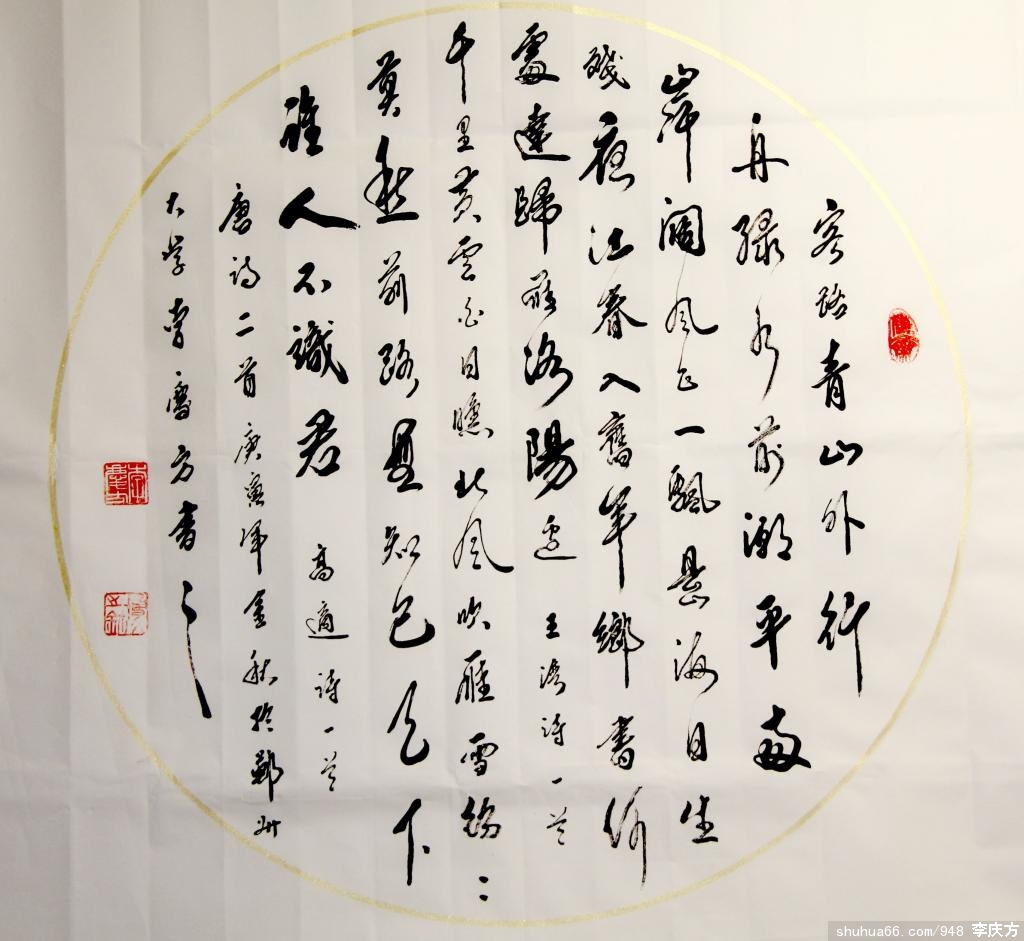 客路青山外行
舟绿水前潮平两
岸阔风正一颿悬海日生
残夜江春入舊年鄉書何
處達歸雁洛陽邊 王湾诗一首
千里黄雲白日曛北风吹雁雪纷二
莫愁前路無知己天下
誰人不識君 高適诗一首
唐诗二首 庚寅年金秋於鄭州
大学李慶方書之
李慶方
shuhua66.com/948 李庆方